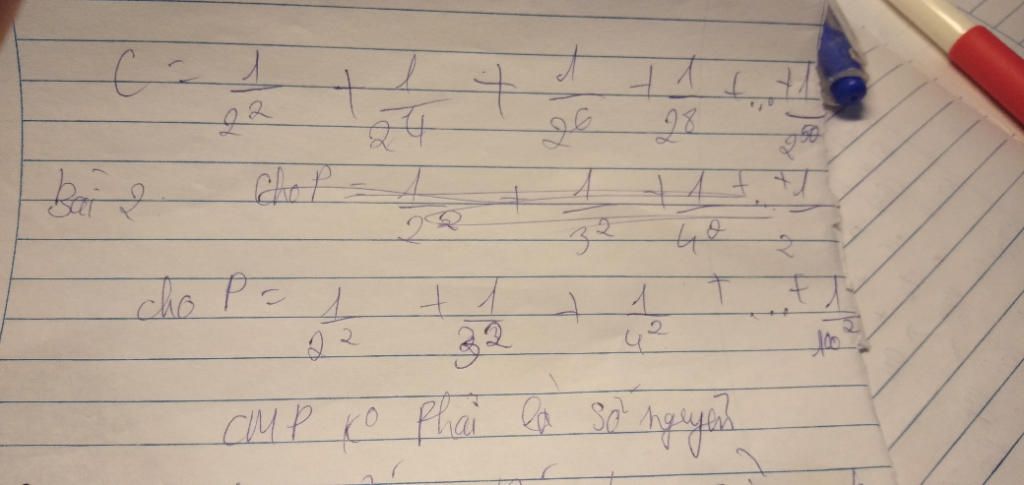 C = 1/2² + 1/2⁴ + 1/2⁶ + 1/2⁸ + ... + 1/2⁵⁰
Bài 2 cho P = 1/2² + 1/3² + 1/4² + ... + 1/2
cho P = 1/2² + 1/3² + 1/4² + ... + 1/100²
CMP ko phải là số nguyên